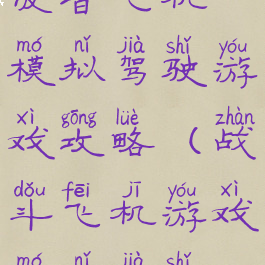 mó nǐ jià shǐ yóu
模拟驾驶游
xì gōng lüè zhàn
戏攻略(战
dǒu fēi jī yóu xì
斗飞机游戏
mó nǐ jià shǐ